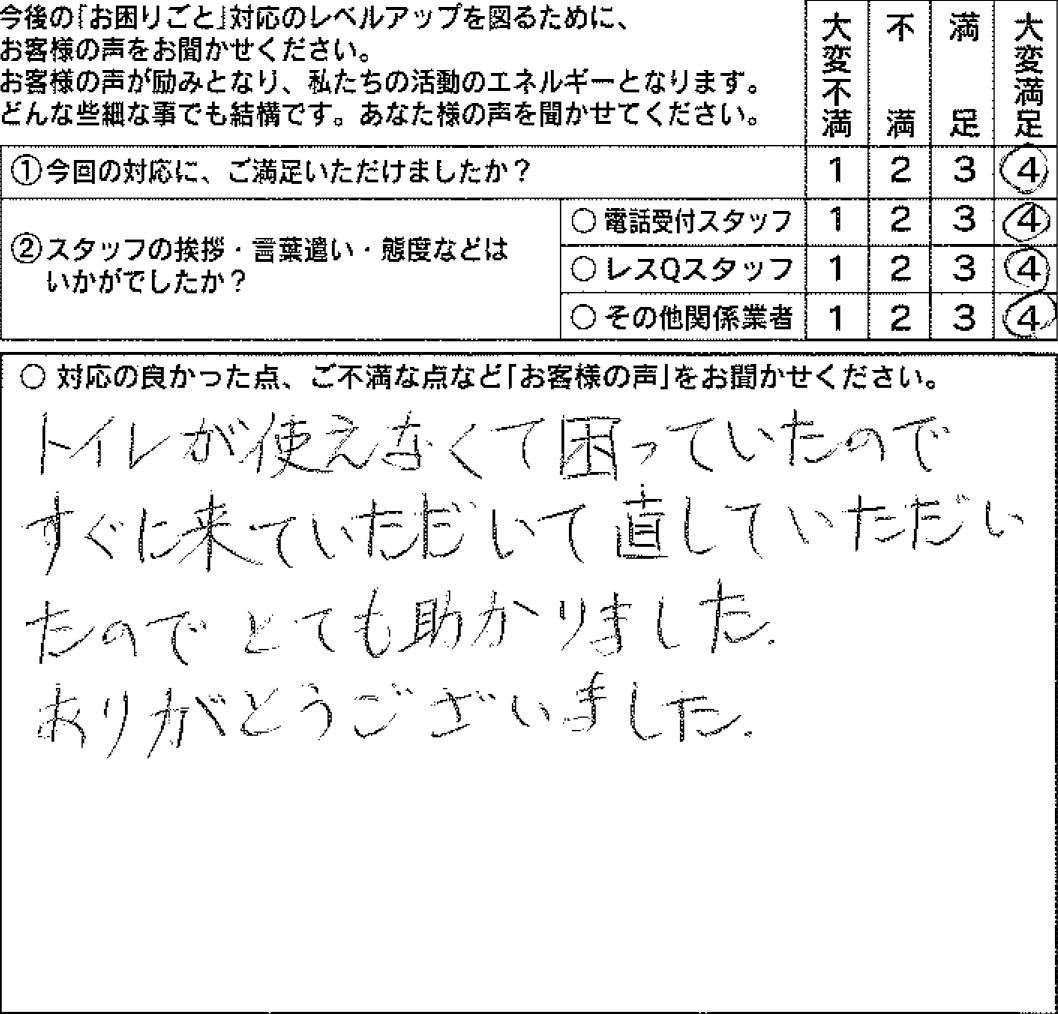 今後の「お困りごと」対応のレベルアップを図るために、
お客様の声をお聞かせください。
お客様の声が励みとなり、私たちの活動のエネルギーとなります。
どんな些細な事でも結構です。あなた様の声を聞かせてください。
大変不満 不満 満足 大変満足
①今回の対応に、ご満足いただけましたか？ 1 2 3 4
②スタッフの挨拶・言葉遣い・態度などは
いかがでしたか？
○ 電話受付スタッフ 1 2 3 4
○ レスQスタッフ 1 2 3 4
○ その他関係業者 1 2 3 4
○ 対応の良かった点、ご不満な点など「お客様の声」をお聞かせください。
トイレが使えなくて困っていたので
すぐに来ていただいて直していただい
たのでとても助かりました.
ありがとうございました.